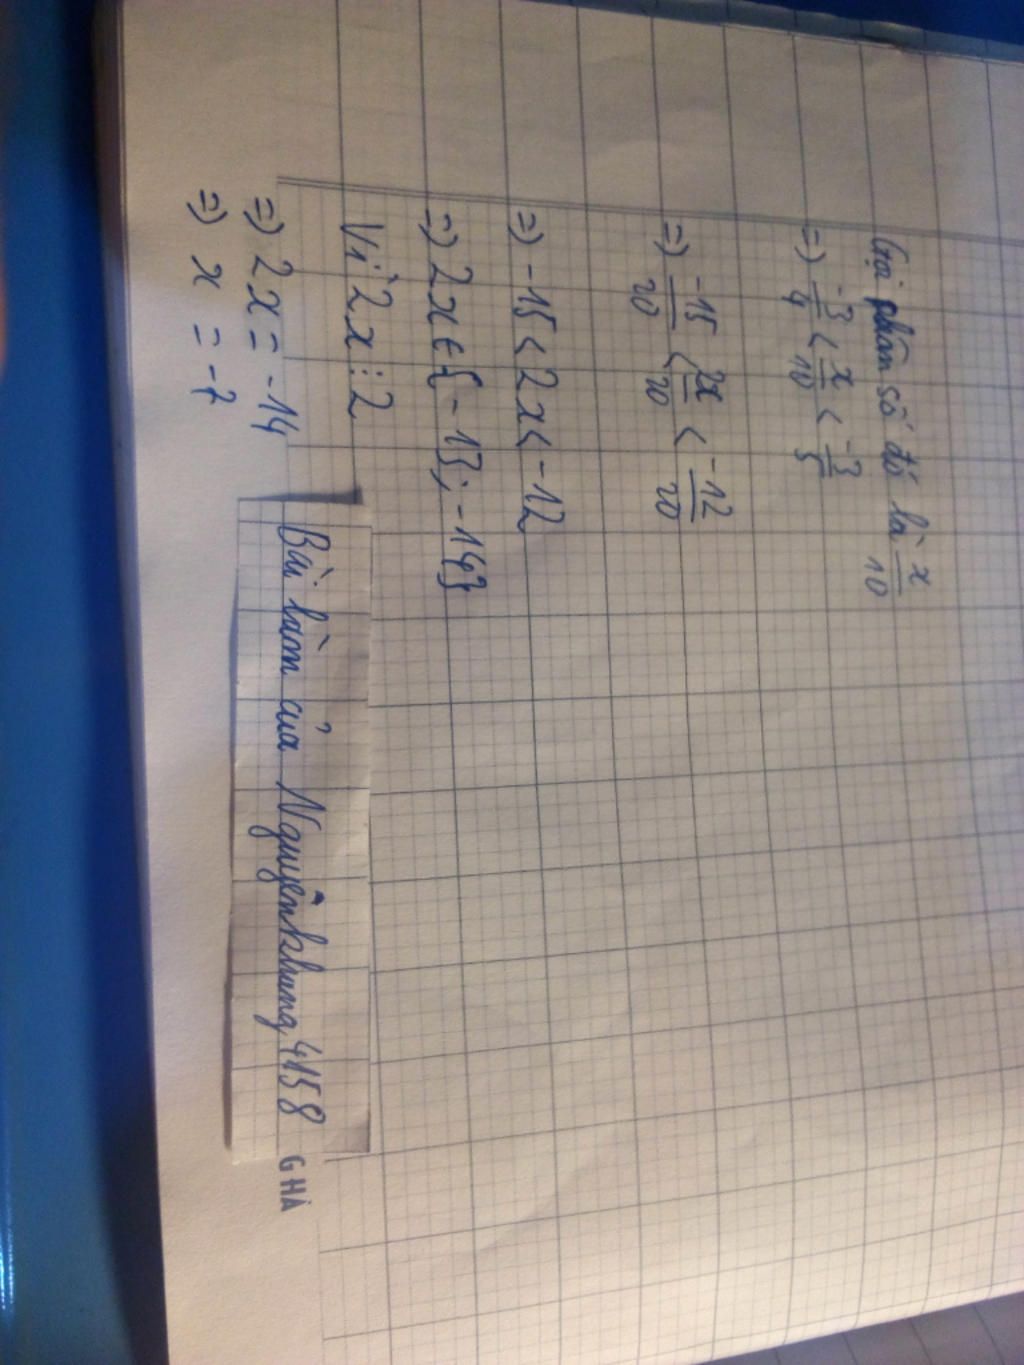 Gọi phân số đó là x/10
=) -3/4 < x/10 < -3/5
=) -15/20 < 2x/20 < -12/20
=) -15 < 2x < -12
=) 2x ϵ { -13; -14}
Vì 2x ⋮ 2
=) 2x = -14
=) x = -7
Bài làm của Nguyễnkhang4158
GHÀ